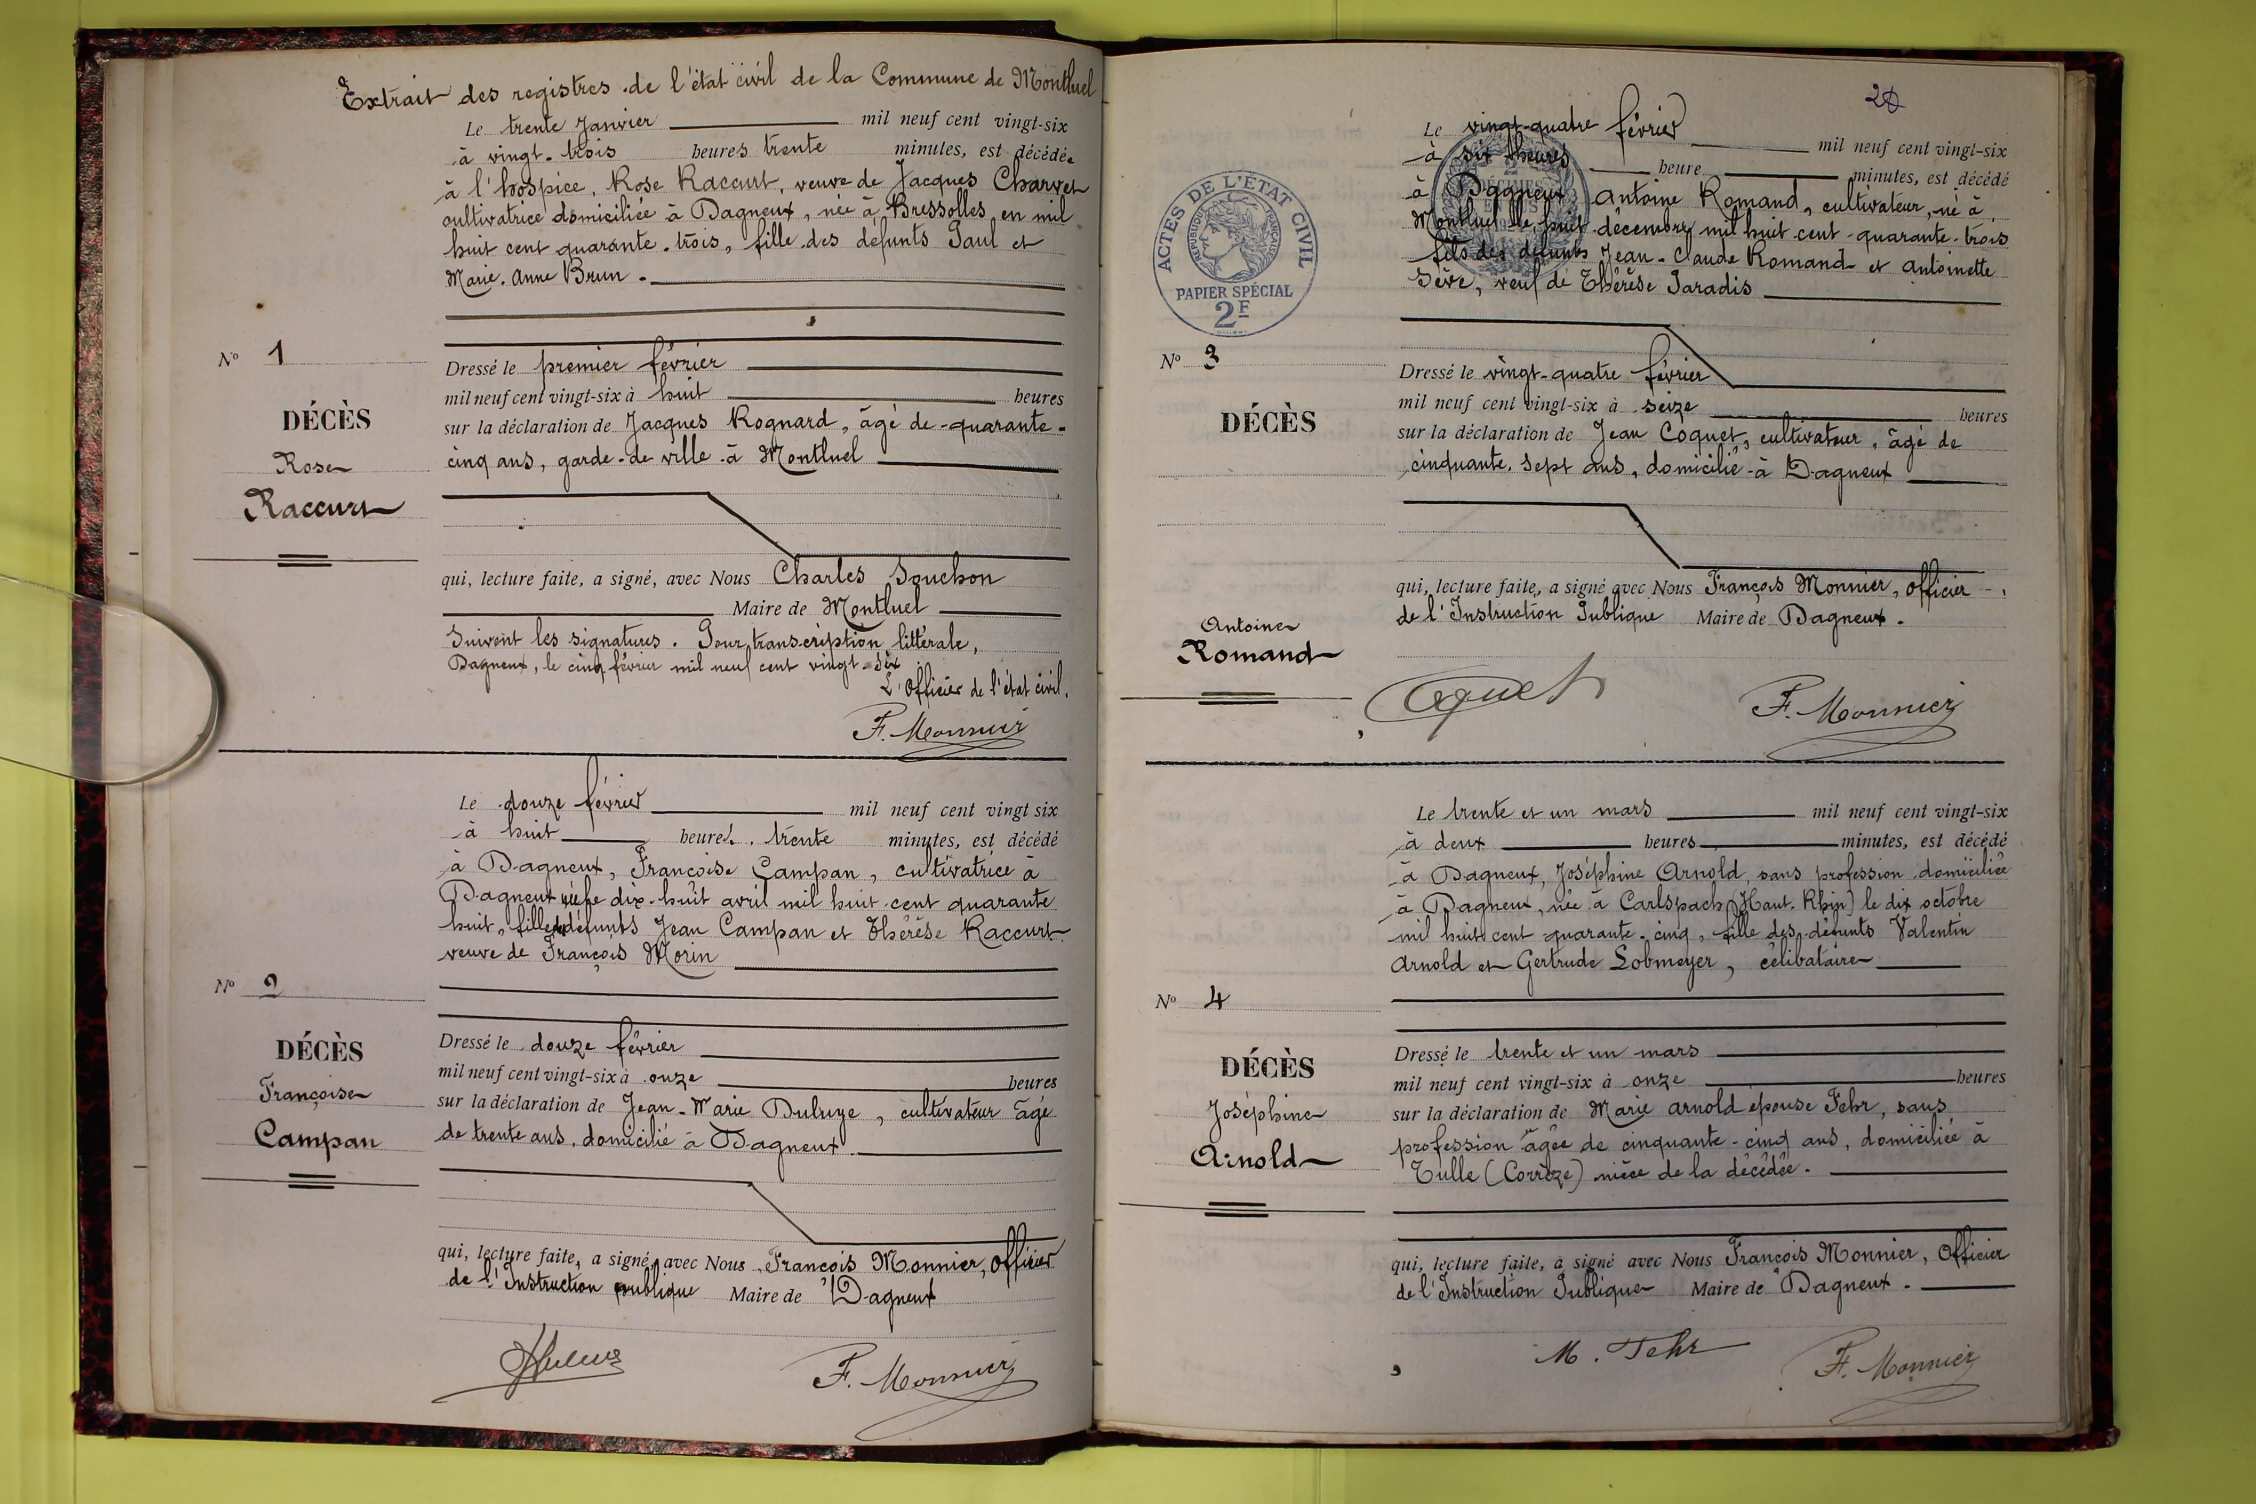 Extrait des registres de l'état civil de la Commune de Montluel
Le trente Janvier mil neuf cent vingt-six
à vingt-trois heures trente minutes, est décédée
à l'hospice, Rose Raccurt, veuve de Jacques Charvet
cultivatrice domiciliée à Dagneux, née à Bressolles en mil
huit cent quarante-trois, fille des défunts Paul et
Marie-Anne Brun.
No 1
DÉCÈS
Rose
Raccurt
Dressé le premier février
mil neuf cent vingt-six à huit heures
sur la déclaration de Jacques Rognard, âgé de quarante-
cinq ans, garde-de ville à Montluel
qui, lecture faite, a signé, avec Nous Charles Souchon
Maire de Montluel
Suivent les signatures. Pour transcription littérale,
Dagneux, le cinq février mil neuf cent vingt-six
L'Officier de l'état civil.
F. Monnier
Le douze février mil neuf cent vingt six
à huit heures trente minutes, est décédé
à Dagneux, Françoise Campan, cultivatrice à
Dagneux née le dix-huit avril mil huit cent quarante
huit, fille des défunts Jean Campan et Thérèse Raccurt
veuve de François Morin
No 2
DÉCÈS
Françoise
Campan
Dressé le douze février
mil neuf cent vingt-six à onze heures
sur la déclaration de Jean-Marie Duluye, cultivateur âgé
de trente ans, domicilié à Dagneux
qui, lecture faite, a signé, avec Nous François Monnier, Officier
de l'Instruction publique Maire de Dagneux
F. Monnier
20
Le vingt-quatre février mil neuf cent vingt-six
à six heures heure minutes, est décédé
à Dagneux Antoine Romand, cultivateur, né à
Montluel le huit décembre mil huit cent quarante-trois
fils des défunts Jean-Claude Romand et Antoinette
Sève, veuf de Thérèse Paradis
ACTES DE L'ÉTAT CIVIL
RÉPUBLIQUE FRANÇAISE
PAPIER SPÉCIAL
2F
No 3
DÉCÈS
Antoine
Romand
Dressé le vingt-quatre février
mil neuf cent vingt-six à seize heures
sur la déclaration de Jean Coquet, cultivateur, âgé de
cinquante-sept ans, domicilié à Dagneux
qui, lecture faite, a signé avec Nous François Monnier, officier
de l'Instruction Publique Maire de Dagneux.
Coquet F. Monnier
Le trente et un mars mil neuf cent vingt-six
à deux heures minutes, est décédé
à Dagneux, Joséphine Arnold, sans profession domiciliée
à Dagneux, née à Carlspach (Haut-Rhin) le dix octobre
mil huit cent quarante-cinq, fille des défunts Valentin
Arnold et Gertrude Lobmeyer, célibataire
No 4
DÉCÈS
Joséphine
Arnold
Dressé le trente et un mars
mil neuf cent vingt-six à onze heures
sur la déclaration de Marie Arnold épouse Fehr, sans
profession âgée de cinquante-cinq ans, domiciliée à
Tulle (Corrèze) nièce de la décédée.
qui, lecture faite, a signé avec Nous François Monnier, Officier
de l'Instruction Publique Maire de Dagneux.
M. Fehr F. Monnier